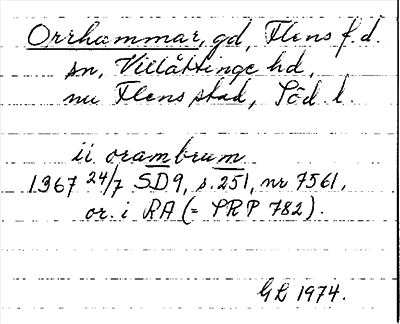 Orrhammar, gd, Flens f.d.
sn, Villåttinge hd,
nu Flens stad, Söd. l.
ii orambrum
1367 24/7 SD9, s. 251, nr 7561,
or. i RA (= PRP 782).
GL 1974.